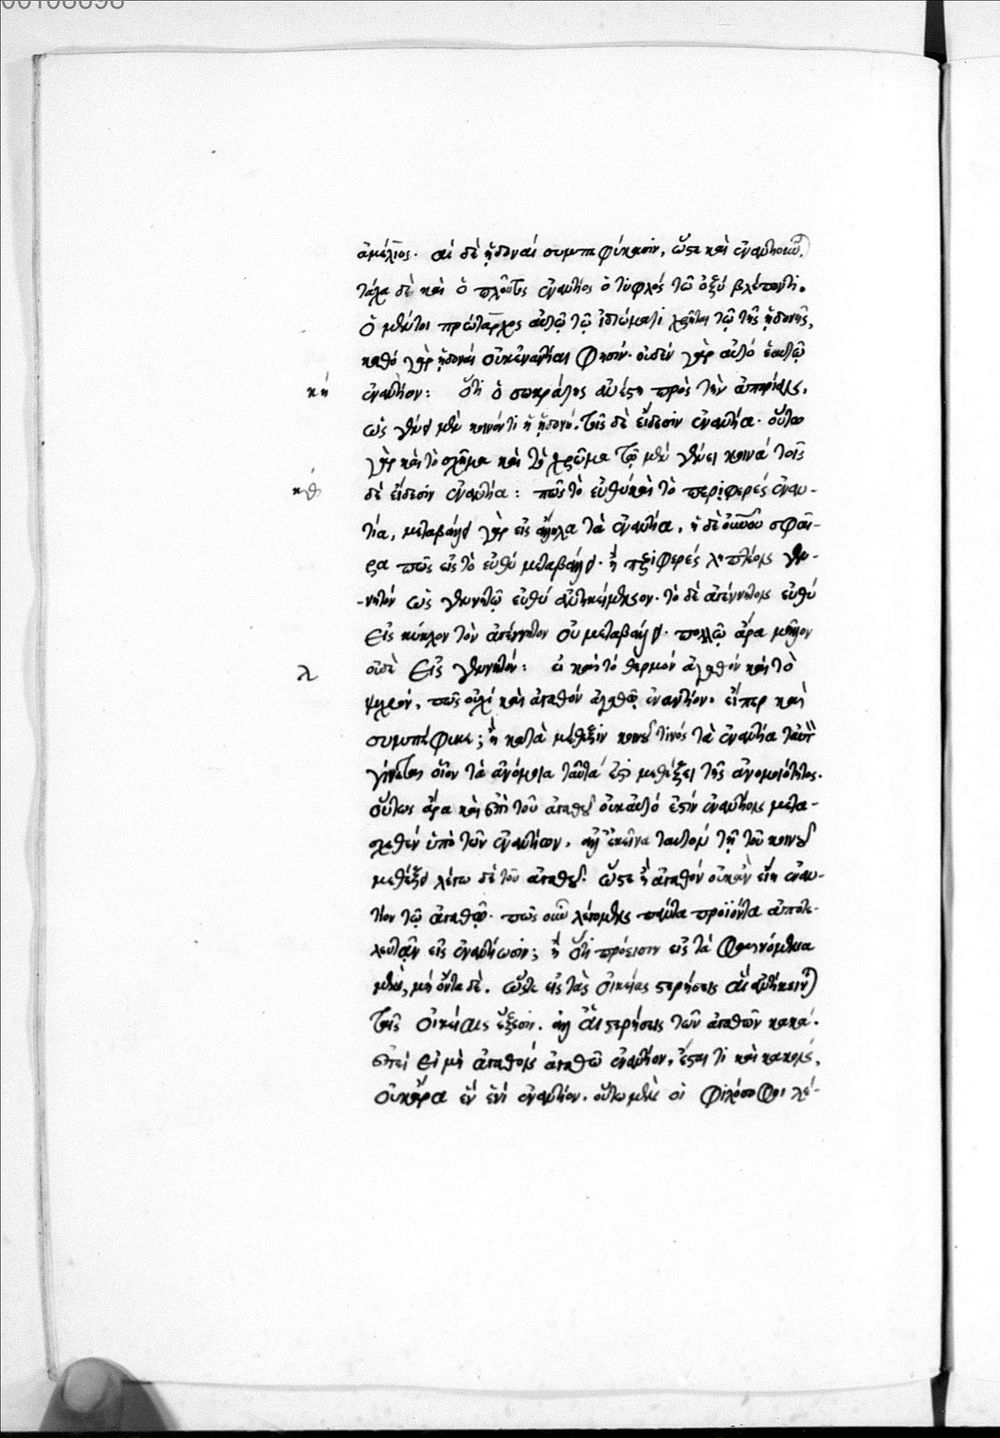 ἀμέλιος. αἱ δὲ ἡδοναὶ συμπεφύκασιν, ὥστε καὶ
τάχα δὲ καὶ ὁ πλοῦτος ἐναντίος ὁ τυφλὸς τῶ ὀξὺ βλέποντι.
Ὁ μέντοι πρώταρχος αὐτῷ τῷ ἰδιώματι χρῆται τῷ τῆς ἡδονῆς,
καθὸ γὰρ ἡδοναὶ οὐκ ἐναντίαι φησίν. οὐδὲν γὰρ αὐτὸ ἑαυτῷ
κη ἐναντίον: ὅτι ὁ σωκράτης πρὸς τὴν
ὡς γένει μὲν κοινόν τι ἡ ἡδονή. τοῖς δὲ εἴδεσιν ἐναντία. οὕτω
γὰρ καὶ τὸ σχῆμα καὶ τὸ χρῶμα τῷ μὲν γένει κοινὰ τοῖς
κθ δὲ εἴδεσιν ἐναντία: πῶς τὸ εὐθὺ καὶ τὸ περιφερὲς ἐναν-
τία, μεταβάλλει γὰρ εἰς ἄλληλα τὰ ἐναντία. ἡ δὲ σφαῖ-
ρα πῶς εἰς τὸ εὐθὺ μεταβάλλει. ἢ περιφερὲς γεν-
νητὸν ὡς γεννητῷ εὐθὺ ἀντικείμενον. τὸ δὲ ἀγέννητον εὐθὺ
εἰς κύκλον τὸν ἀγέννητον οὐ μεταβάλλει. πολλῷ ἄρα μᾶλλον
λ οὐδὲ εἰς γεννητόν: εἰ καὶ τὸ θερμὸν ἀγαθὸν καὶ τὸ
ψυχρόν, πῶς οὐχὶ καὶ ἀγαθὸν ἀγαθῷ ἐναντίον. εἴπερ καὶ
συμπέφυκε; ἢ κατὰ μέθεξιν κοινοῦ τινὸς τὰ ἐναντία
γίνεται οἷον τὰ ἀνόμοια ταὐτά ἐστι μεθέξει τῆς ἀνομοιότητος.
οὕτως ἄρα καὶ ἐπὶ τοῦ ἀγαθοῦ οὐκ αὐτό ἐστιν ἐναντίον μετα-
σχεθὲν ὑπὸ τῶν ἐναντίων. ἀλλ' ἐκεῖνα ταυτὸν τῇ τοῦ κοινοῦ
μεθέξει λέγω δὲ τοῦ ἀγαθοῦ. ὥστε ᾗ ἀγαθὸν οὐκ ἂν εἴη ἐναν-
τίον τῷ ἀγαθῷ. πῶς οὖν λέγομεν πάντα προϊόντα ἀποτε-
λευτᾶν εἰς ἐναντίωσιν; ἢ ὅτι πρόεισιν εἰς τὰ φαινόμενα
μὲν, μὴ ὄντα δὲ. ὥστε εἰς τὰς οἰκείας στερήσεις αἳ ἀντίκεινται
τοῖς οἰκείαις ἕξεσιν. ἀλλ' αἱ στερήσεις τῶν ἀγαθῶν κακά.
ἐπεὶ εἰ μὴ ἀγαθὸν ἀγαθῶ ἐναντίον, ἔσται τι καὶ κακόν,
οὐκ ἄρα ἓν ἑνὶ ἐναντίον. οὕτω μὲν οἱ φιλόσοφοι λέ-